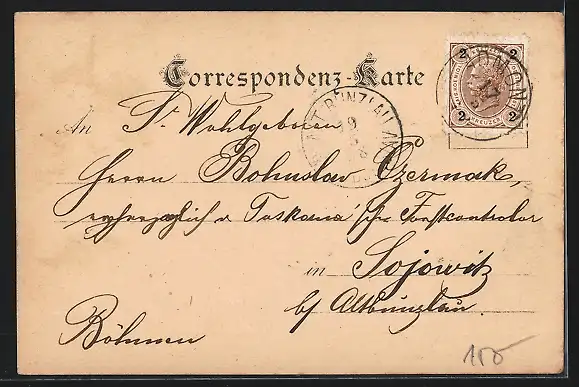 Correspondenz-Karte
2 2
KREUZER
2 2
17
BRANDEIS-ALTBUNZLAU
19
An Sr. Wohlgeboren
Herrn Bohuslav Czermak,
erzherzoglich v Toskana'scher Forstcontrolor
in Sojowitz
b/ Altbunzlau.
Böhmen
100